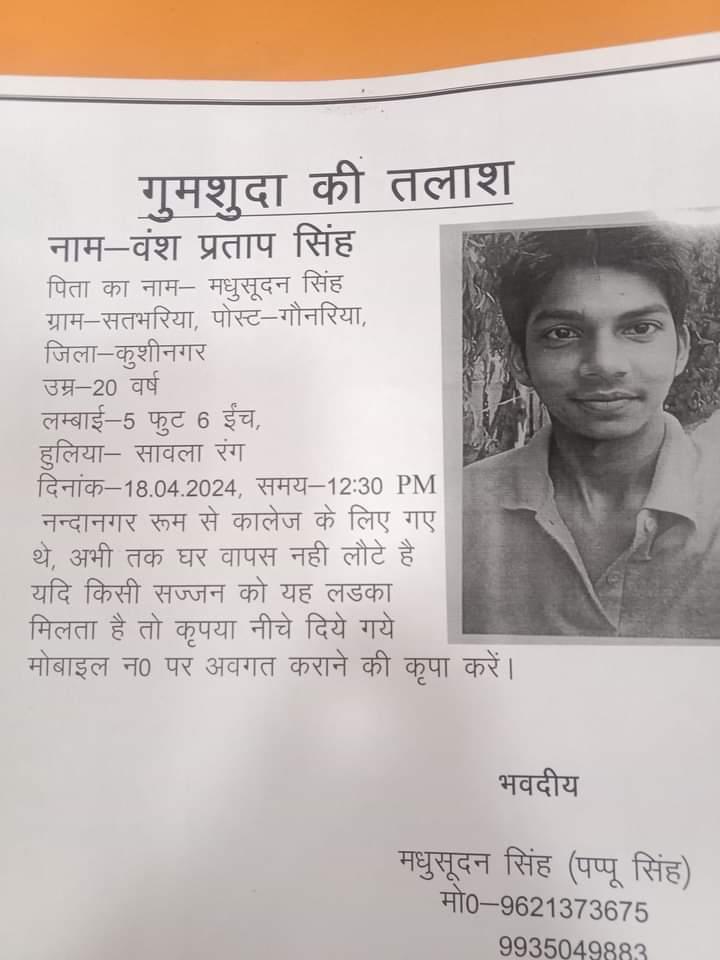 गुमशुदा की तलाश
नाम–वंश प्रताप सिंह
पिता का नाम– मधुसूदन सिंह
ग्राम–सतभरिया, पोस्ट–गौनरिया,
जिला–कुशीनगर
उम्र–20 वर्ष
लम्बाई–5 फुट 6 ईंच,
हुलिया– सावला रंग
दिनांक–18.04.2024, समय–12:30 PM
नन्दानगर रूम से कालेज के लिए गए
थे, अभी तक घर वापस नही लौटे है
यदि किसी सज्जन को यह लडका
मिलता है तो कृपया नीचे दिये गये
मोबाइल न0 पर अवगत कराने की कृपा करें।
भवदीय
मधुसूदन सिंह (पप्पू सिंह)
मो0–9621373675
9935049883